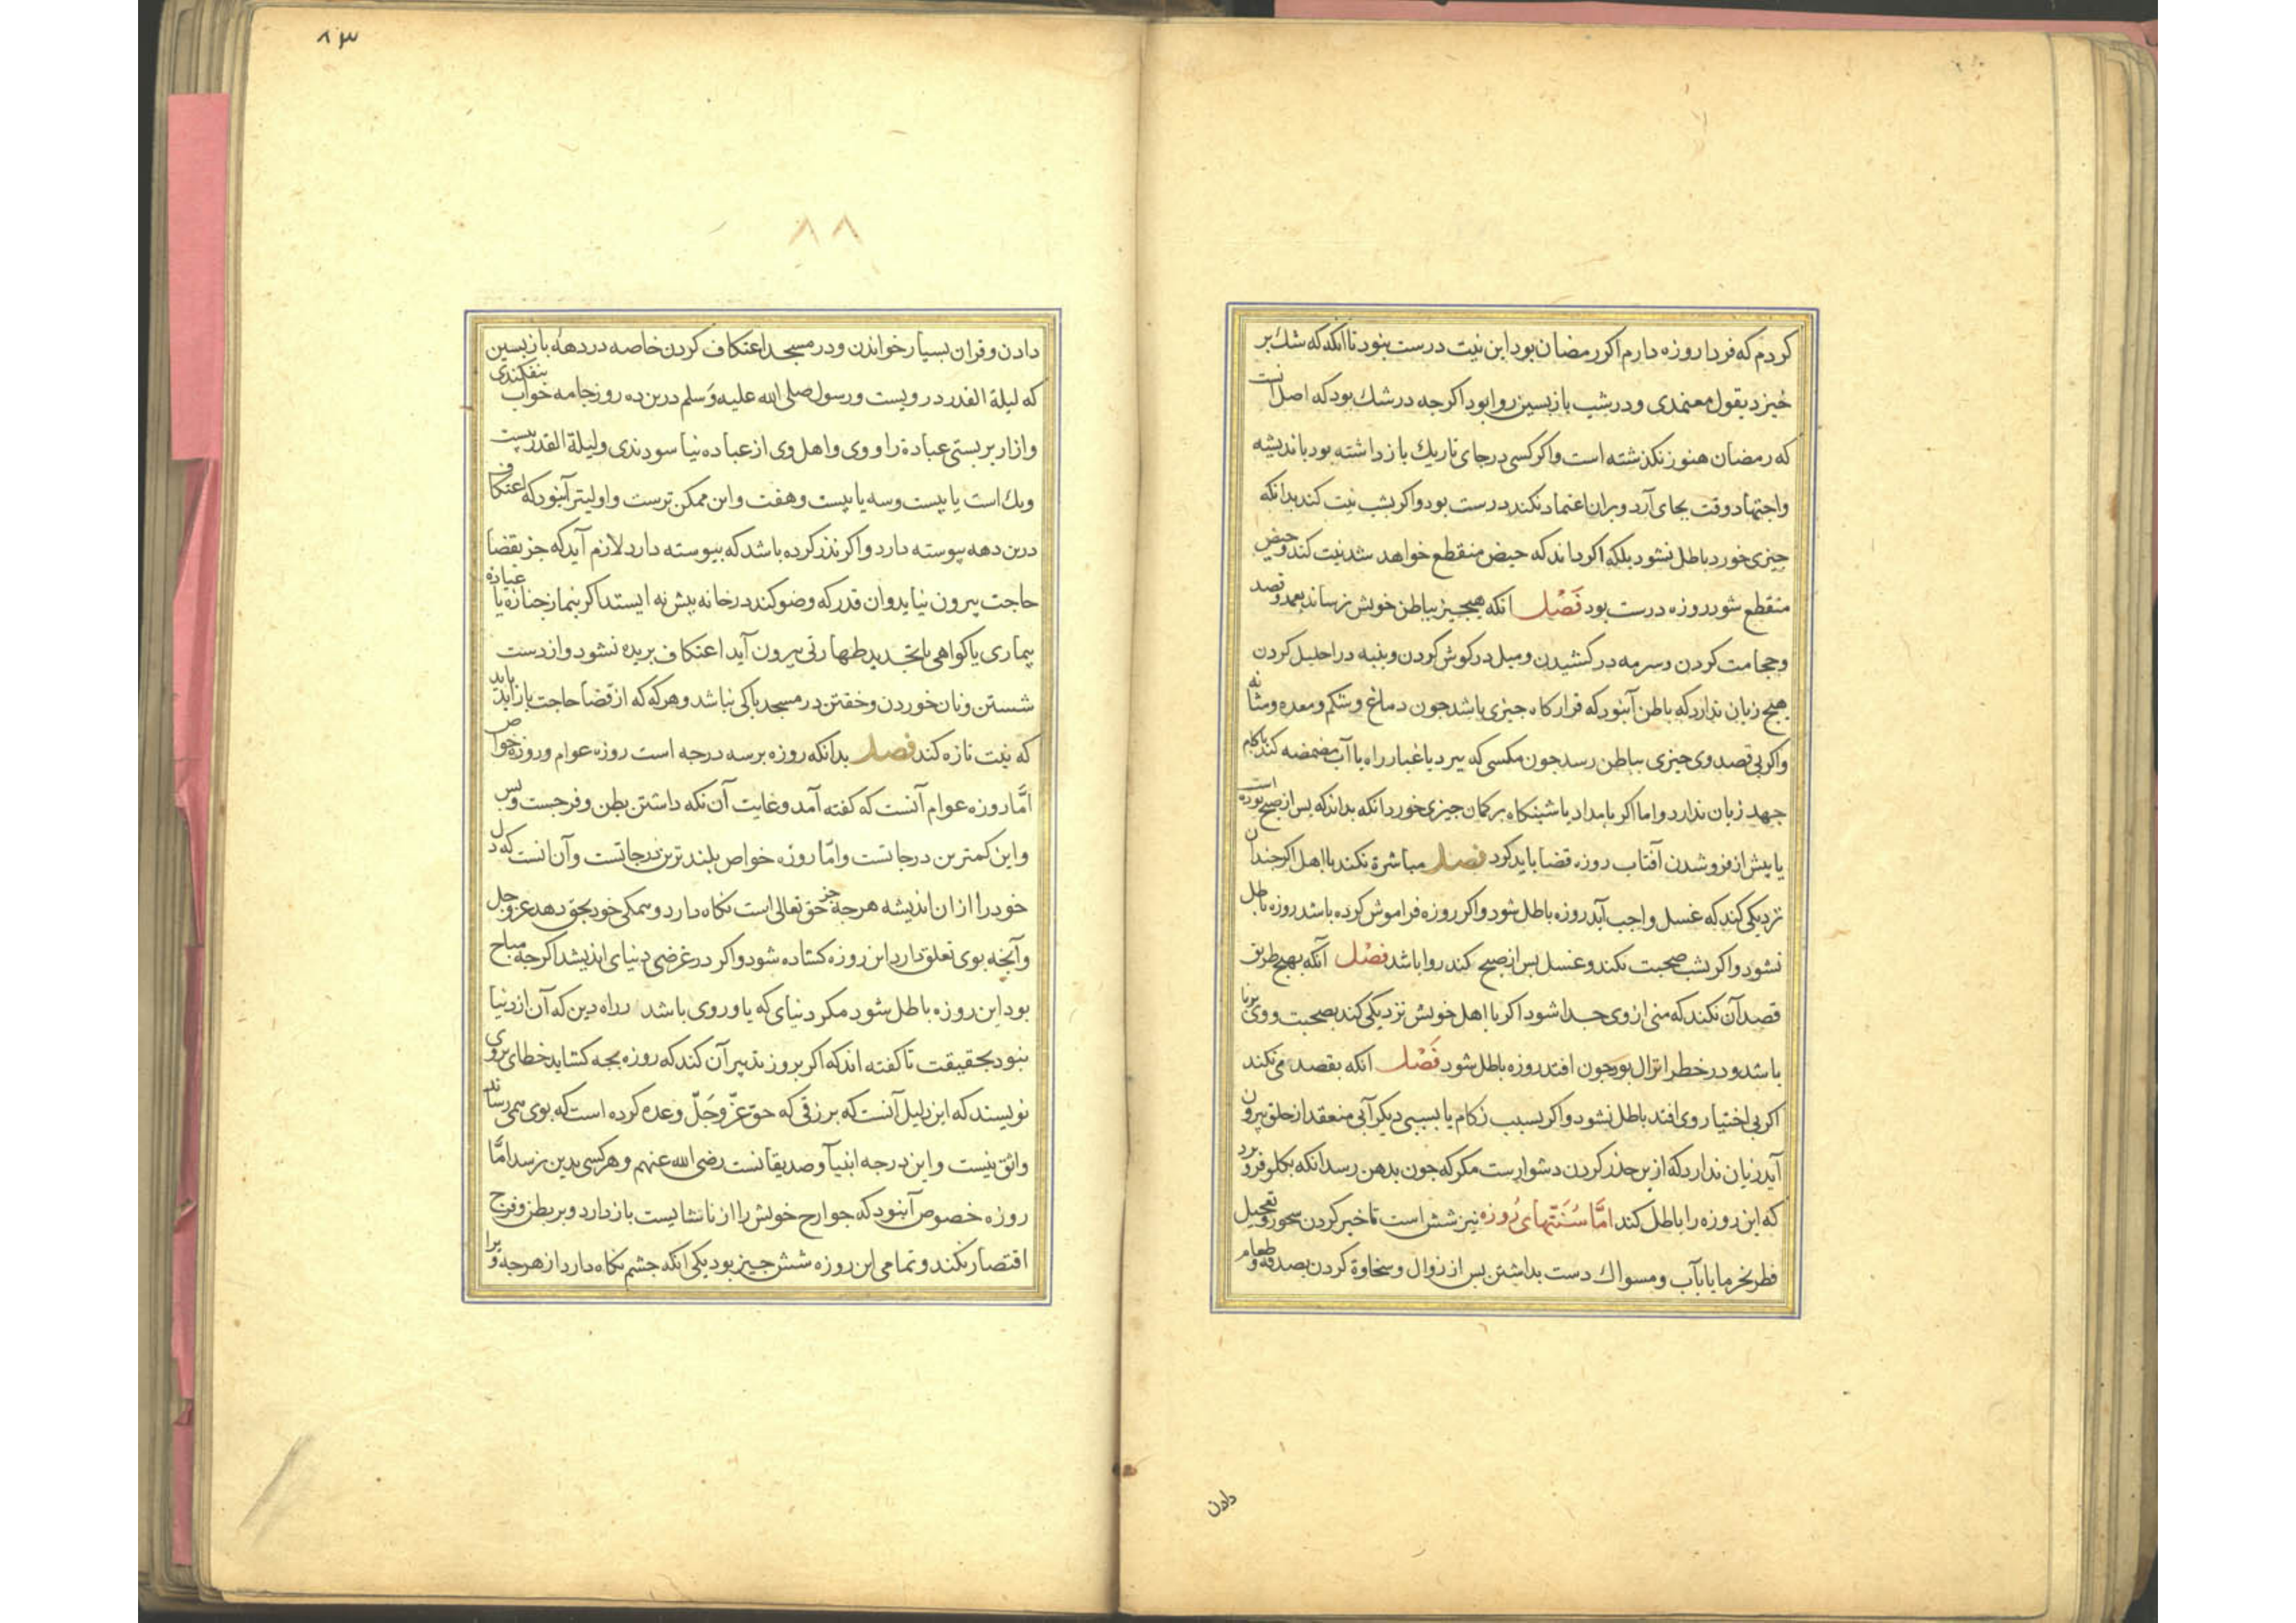 کردم که فردا روزه دارم اکر رمضان بود این نیت درست نبود تا انکه که شك بر
خیزد بقول معتمدی و در شب بازبسین روا بود اکرچه در شك بود که اصل آنست
که رمضان هنوز نکذشته است و اکر کسی در جای تاریك بازداشته بود باندیشه
واجتهاد وقت بجای آرد و بران اعتماد نکند درست بود و اکر بشب نیت کند بدانکه
چیزی خورد باطل نشود بلکه اکر داند که حیض منقطع خواهد شد نیت کند و حیض
منقطع شود روزه درست بود فصل انکه هیچ چیز بباطن خویش نرساند بعمد و قصد
و حجامت کردن و سرمه در کشیدن و میل در کوش کردن و بنبه در احلیل کردن
هیچ زیان ندارد که باطن آنبود که قرارکاه چیزی باشد جون دماغ و شکم و معده و مثانه
و اکر بی قصد وی چیزی بباطن رسد جون مکسی که ببرد یا غبار راه یا آب مضمضه کند باکام
جهد زیان ندارد و اما اکر بامداد یا شبنکاه برکمان چیزی خورد انکه بداند که بس از صبح بوده است
یا بیش از فروشدن آفتاب روزه قضا باید کرد فصل مباشرة نکند با اهل اکر چندان
نزدیکی کند که غسل واجب آید روزه باطل شود و اکر روزه فراموش کرده باشد روزه باطل
نشود و اکر بشب صحبت نکند و غسل بس از صبح کند روا باشد فصل آنکه بهیچ طریق
قصد آن نکند که منی از وی جدا شود اکر با اهل خویش نزدیکی کند بصحبت و وی برنا
باشد و در خطر انزال بود جون افتد روزه باطل شود فصل انکه بقصد قی نکند
اکر بی اختیار وی افتد باطل نشود و اکر بسبب زکام یا بسببی دیکر آبی منعقد از حلق بیرون
آید زیان ندارد که از بر حذر کردن دشوارست مکر که جون بدهن رسد انکه بکلو فرو برد
که این روزه را باطل کند اما سنتهای روزه نیز شش است تاخیر کردن سحور و تعجیل
فطر بخرما یا بآب و مسواك دست بداشتن بس از زوال و سخاوة کردن بصدقه و طعام
دادن
۸۳
۸۸
دادن و قران بسیار خواندن و در مسجد اعتکاف کردن خاصه در دههٔ بازبسین
که لیلة القدر در ویست و رسول صلی الله علیه وسلم درین ده روز جامه خواب بیفکندی
و ازار بربستی عبادة را و وی و اهل وی از عباده نیاسودندی و لیلة القدر بیست
ویك است یا بیست و سه یا بیست و هفت و این ممکن ترست و اولیتر آنبود که اعتکاف
درین دهه بیوسته دارد و اکر نذر کرده باشد که بیوسته دارد لازم آید که جز بقضا
حاجت بیرون نیاید و ان قدر که وضو کند در خانه بیش نه ایستد اکر بنماز جنازه یا عیادة
بیماری یا کواهی یا تجدید طهارتی بیرون آید اعتکاف بریده نشود و از دست
شستن و نان خوردن و خفتن در مسجد باکی نباشد و هرکه که از قضا حاجت باز آید باید
که نیت تازه کند فصل بدانکه روزه بر سه درجه است روزه عوام و روزه خواص
اما روزه عوام آنست که کفته آمد و غایت آن نکه داشتن بطن و فرجست و بس
و این کمترین درجاتست و اما روزه خواص بلندترین درجاتست و آن انست که دل
خود را از ان اندیشه هرچه جز حق تعالی است نکاه دارد و همکی خود بحق دهد عز و جل
و آنچه بوی تعلق دارد این روزه کشاده شود و اکر در غرضی دنیای اندیشد اکرچه مباح
بود این روزه باطل شود مکر دنیای که یاور وی باشد در راه دین که آن از دنیا
نبود بحقیقت تا کفته اند که اکر بروز تدبیر آن کند که روزه بچه کشاید خطای بر وی
نویسند که این دلیل آنست که برزقی که حق عز وجل وعده کرده است که بوی همی رساند
واثق نیست و این درجه انبیآ و صدیقانست رضی الله عنهم و هرکسی بدین نرسد اما
روزه خصوص آنبود که جوارح خویش را از ناشایست بازدارد و بر بطن و فرج
اقتصار نکند و تمامی این روزه شش چیز بود یکی انکه چشم نکاه دارد از هرچه ورا